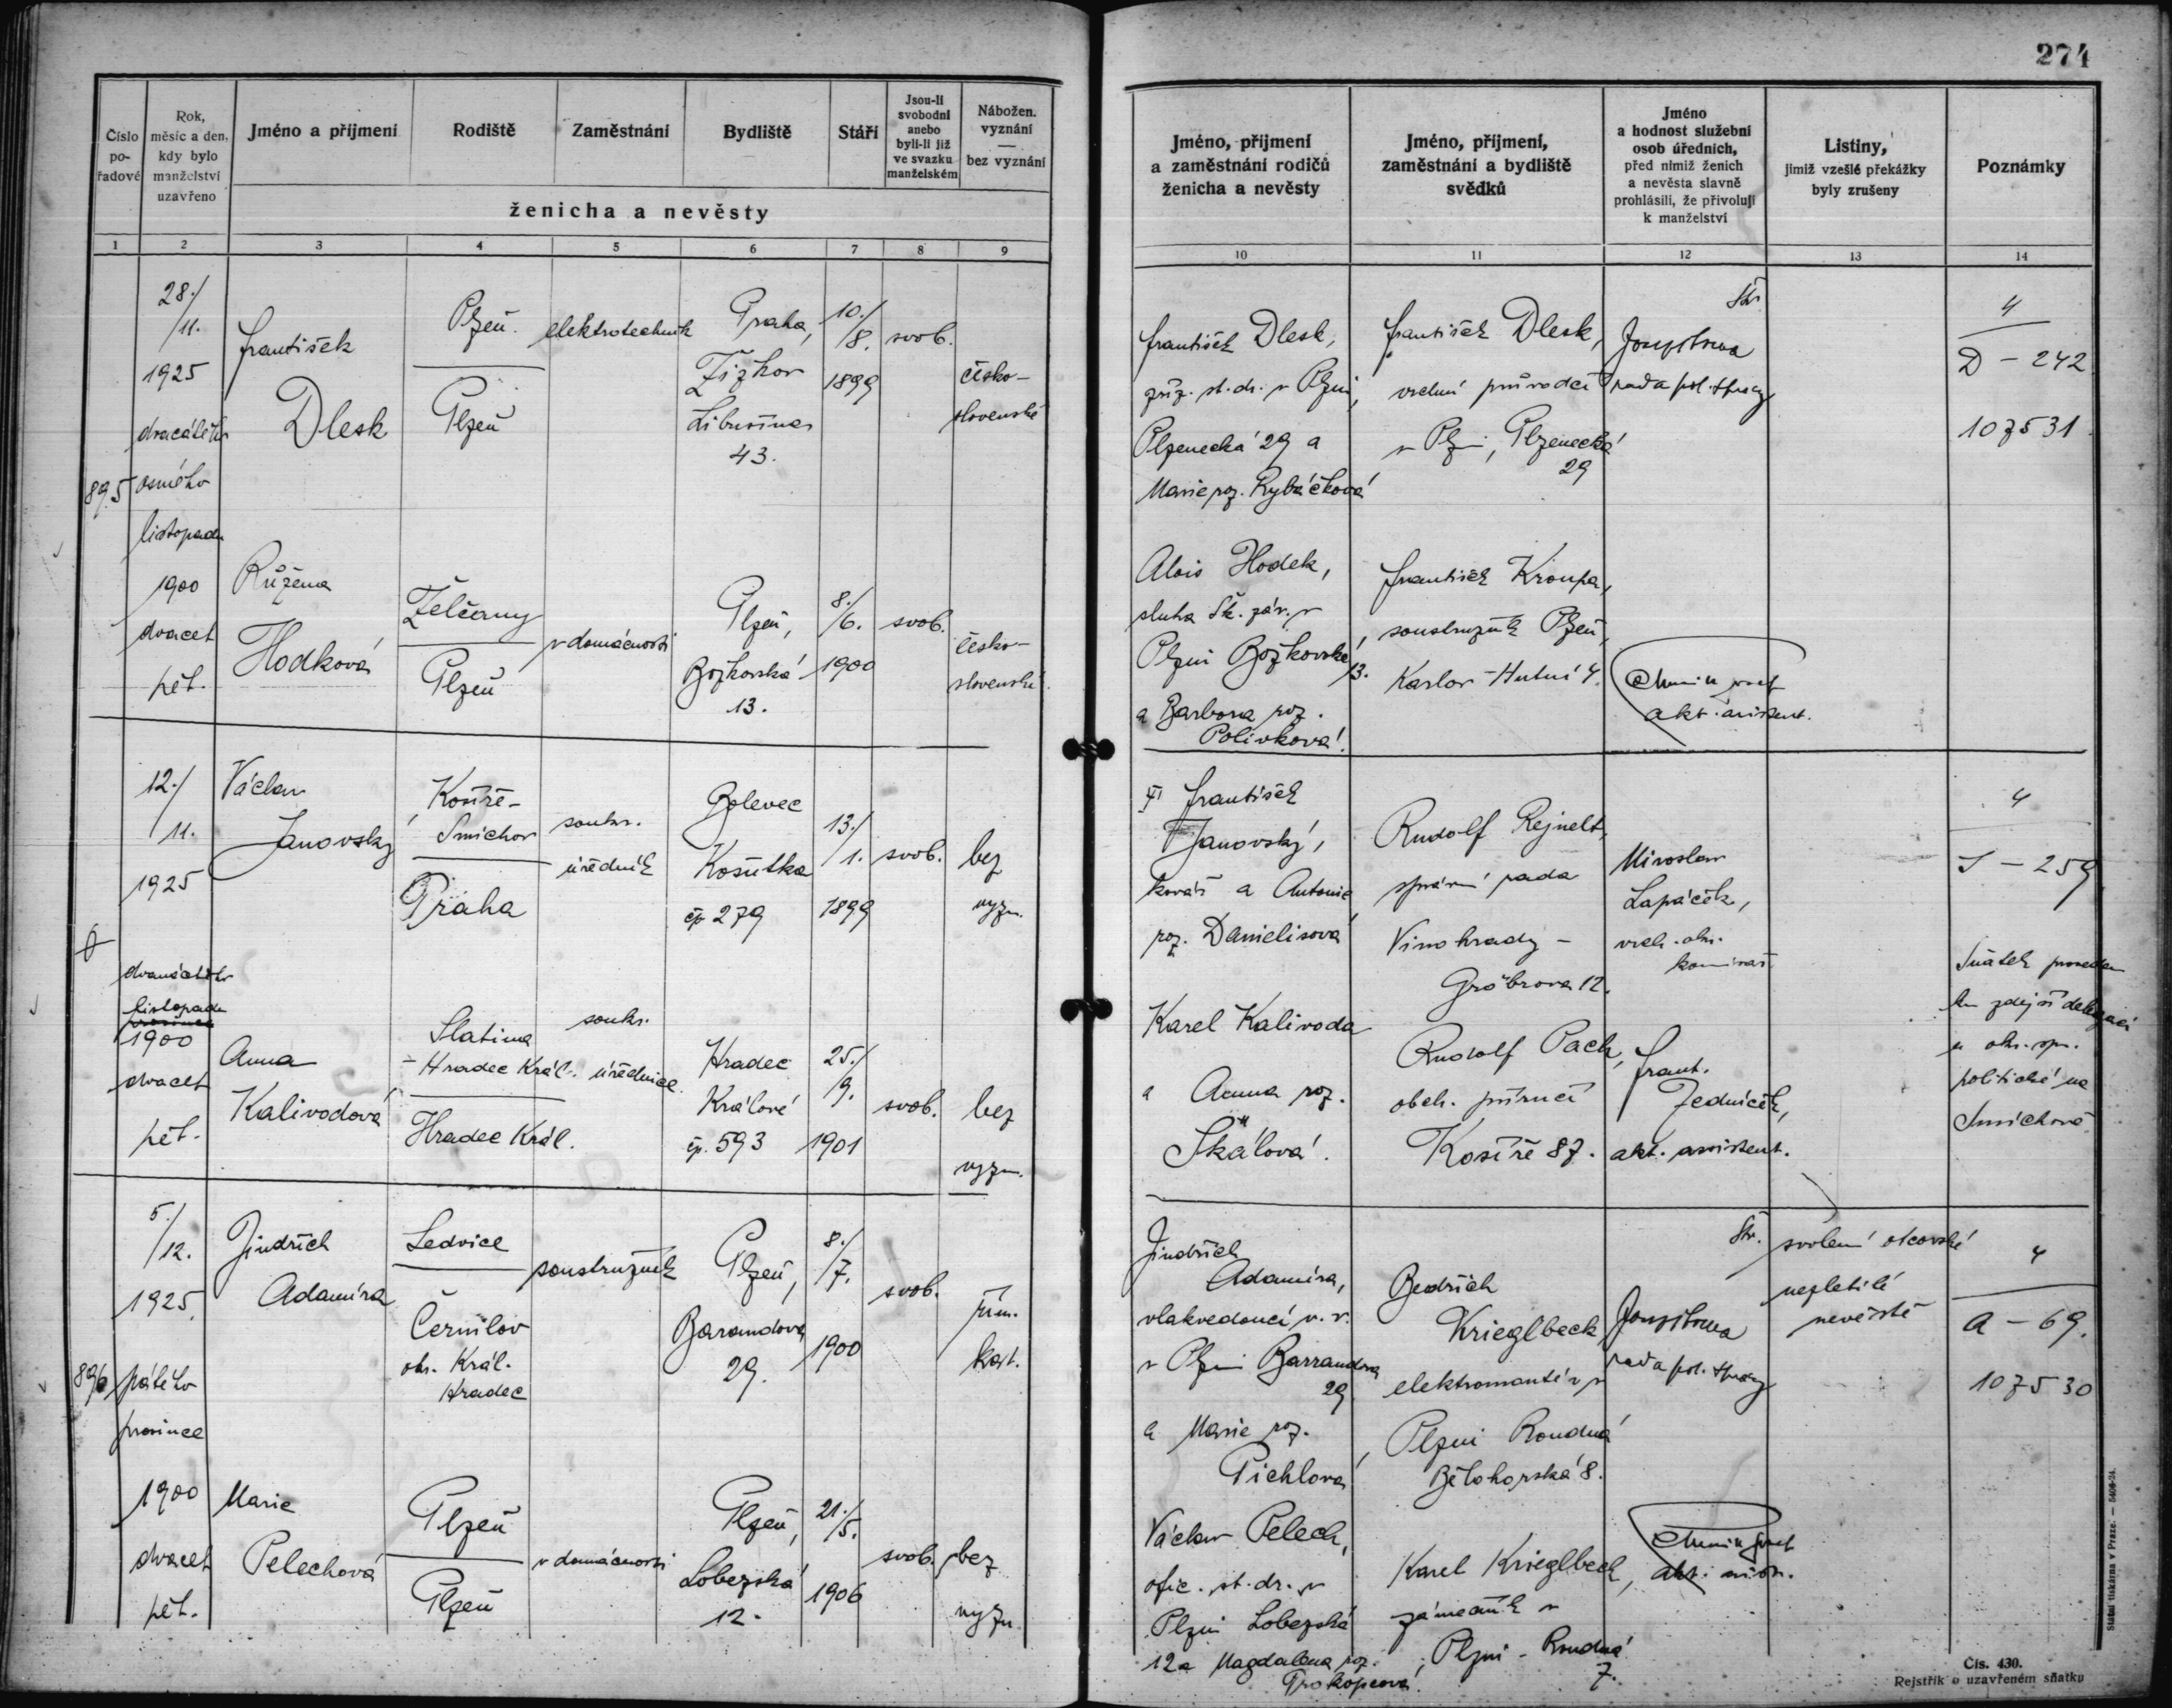 274
Číslo pořadové
Rok, měsíc a den, kdy bylo manželství uzavřeno
Jméno a příjmení
Rodiště
Zaměstnání
Bydliště
Stáří
Jsou-li svobodni anebo byli-li již ve svazku manželském
Nábožen. vyznání — bez vyznání
ženicha a nevěsty
Jméno, příjmení a zaměstnání rodičů ženicha a nevěsty
Jméno, příjmení, zaměstnání a bydliště svědků
Jméno a hodnost služební osob úředních, před nimiž ženich a nevěsta slavně prohlásili, že přivolují k manželství
Listiny, jimiž vzešlé překážky byly zrušeny
Poznámky
1 2 3 4 5 6 7 8 9 10 11 12 13 14
895
28./
11.
1925
dvacátého
osmého
listopadu
1900
dvacet
pět.
František
Dlesk
Plzeň.
Plzeň
elektrotechnik
Praha,
Žižkov
Libušina
43.
10./
8.
1899
svob.
česko-
slovenské
František Dlesk,
zříz. st. dr. v Plzni,
Plzenecká 29 a
Marie roz. Rybáčková
František Dlesk,
vrchní průvodčí
v Plzni, Plzenecká
29
rada pol. správy
4
D - 242
107531
Růžena
Hodková
Želčany
Plzeň
v domácnosti
Plzeň,
Božkovská
13.
8./
6.
1900
svob.
česko-
slovenské
Alois Hodek,
sluha Šk. záv. v
Plzni Božkovská
13.
a Barbora roz.
Polívková.
František Kroupa,
soustružník Plzeň,
Karlov - Hutní 4.
akt. asistent.
12./
11.
1925
dvanáctého
listopadu
1900
dvacet
pět.
Václav
Janovský
Košíře-
Smíchov
Praha
soukr.
úředník
Bolevec
Košutka
čp 279
13./
1.
1899
svob.
bez
vyzn.
František
Janovský,
kovář a Antonie
roz. Danielisová
Rudolf Rejnelt,
správní rada
Vinohrady -
Gröbrova 12.
Miroslav
Lapáček,
vrch. okr.
komisař
4
J - 259
Sňatek proveden
delegací
u okr. spr.
politické na
Smíchově
Anna
Kalivodová
Slatina
- Hradec Král.
Hradec Král.
soukr.
úřednice.
Hradec
Králové
čp. 593
25./
9.
1901
svob.
bez
vyzn.
Karel Kalivoda
a Anna roz.
Škálová.
Rudolf Pach,
obch. příručí
Košíře 87.
Frant.
Jedníček,
akt. assistent.
896
5./
12.
1925
pátého
prosince
1900
dvacet
pět.
Jindřich
Adamíra
Ledvice
Černilov
okr. Král.
Hradec
soustružník
Plzeň,
Barandova
29.
8./
7.
1900
svob.
řím.
kat.
Jindřich
Adamíra,
vlakvedoucí v. v.
v Plzni Barrandova
29
a Marie roz.
Pichlová
Bedřich
Krieglbeck
elektromontér v
Plzni Roudná
Bělohorská 8.
rada pol. správy
svolení otcovské
nezletilé
nevěstě
4
A - 69.
107530
Marie
Pelechová
Plzeň
Plzeň
v domácnosti
Plzeň,
Lobezská
12.
21./
5.
1906
svob.
bez
vyzn.
Václav Pelech,
ofic. st. dr. v
Plzni Lobezská
12 a Magdalena roz.
Prokopcová.
Karel Krieglbeck,
zámečník v
Plzni - Roudná
7.
Státní tiskárna v Praze. — 5404-24.
Čís. 430.
Rejstřík o uzavřeném sňatku